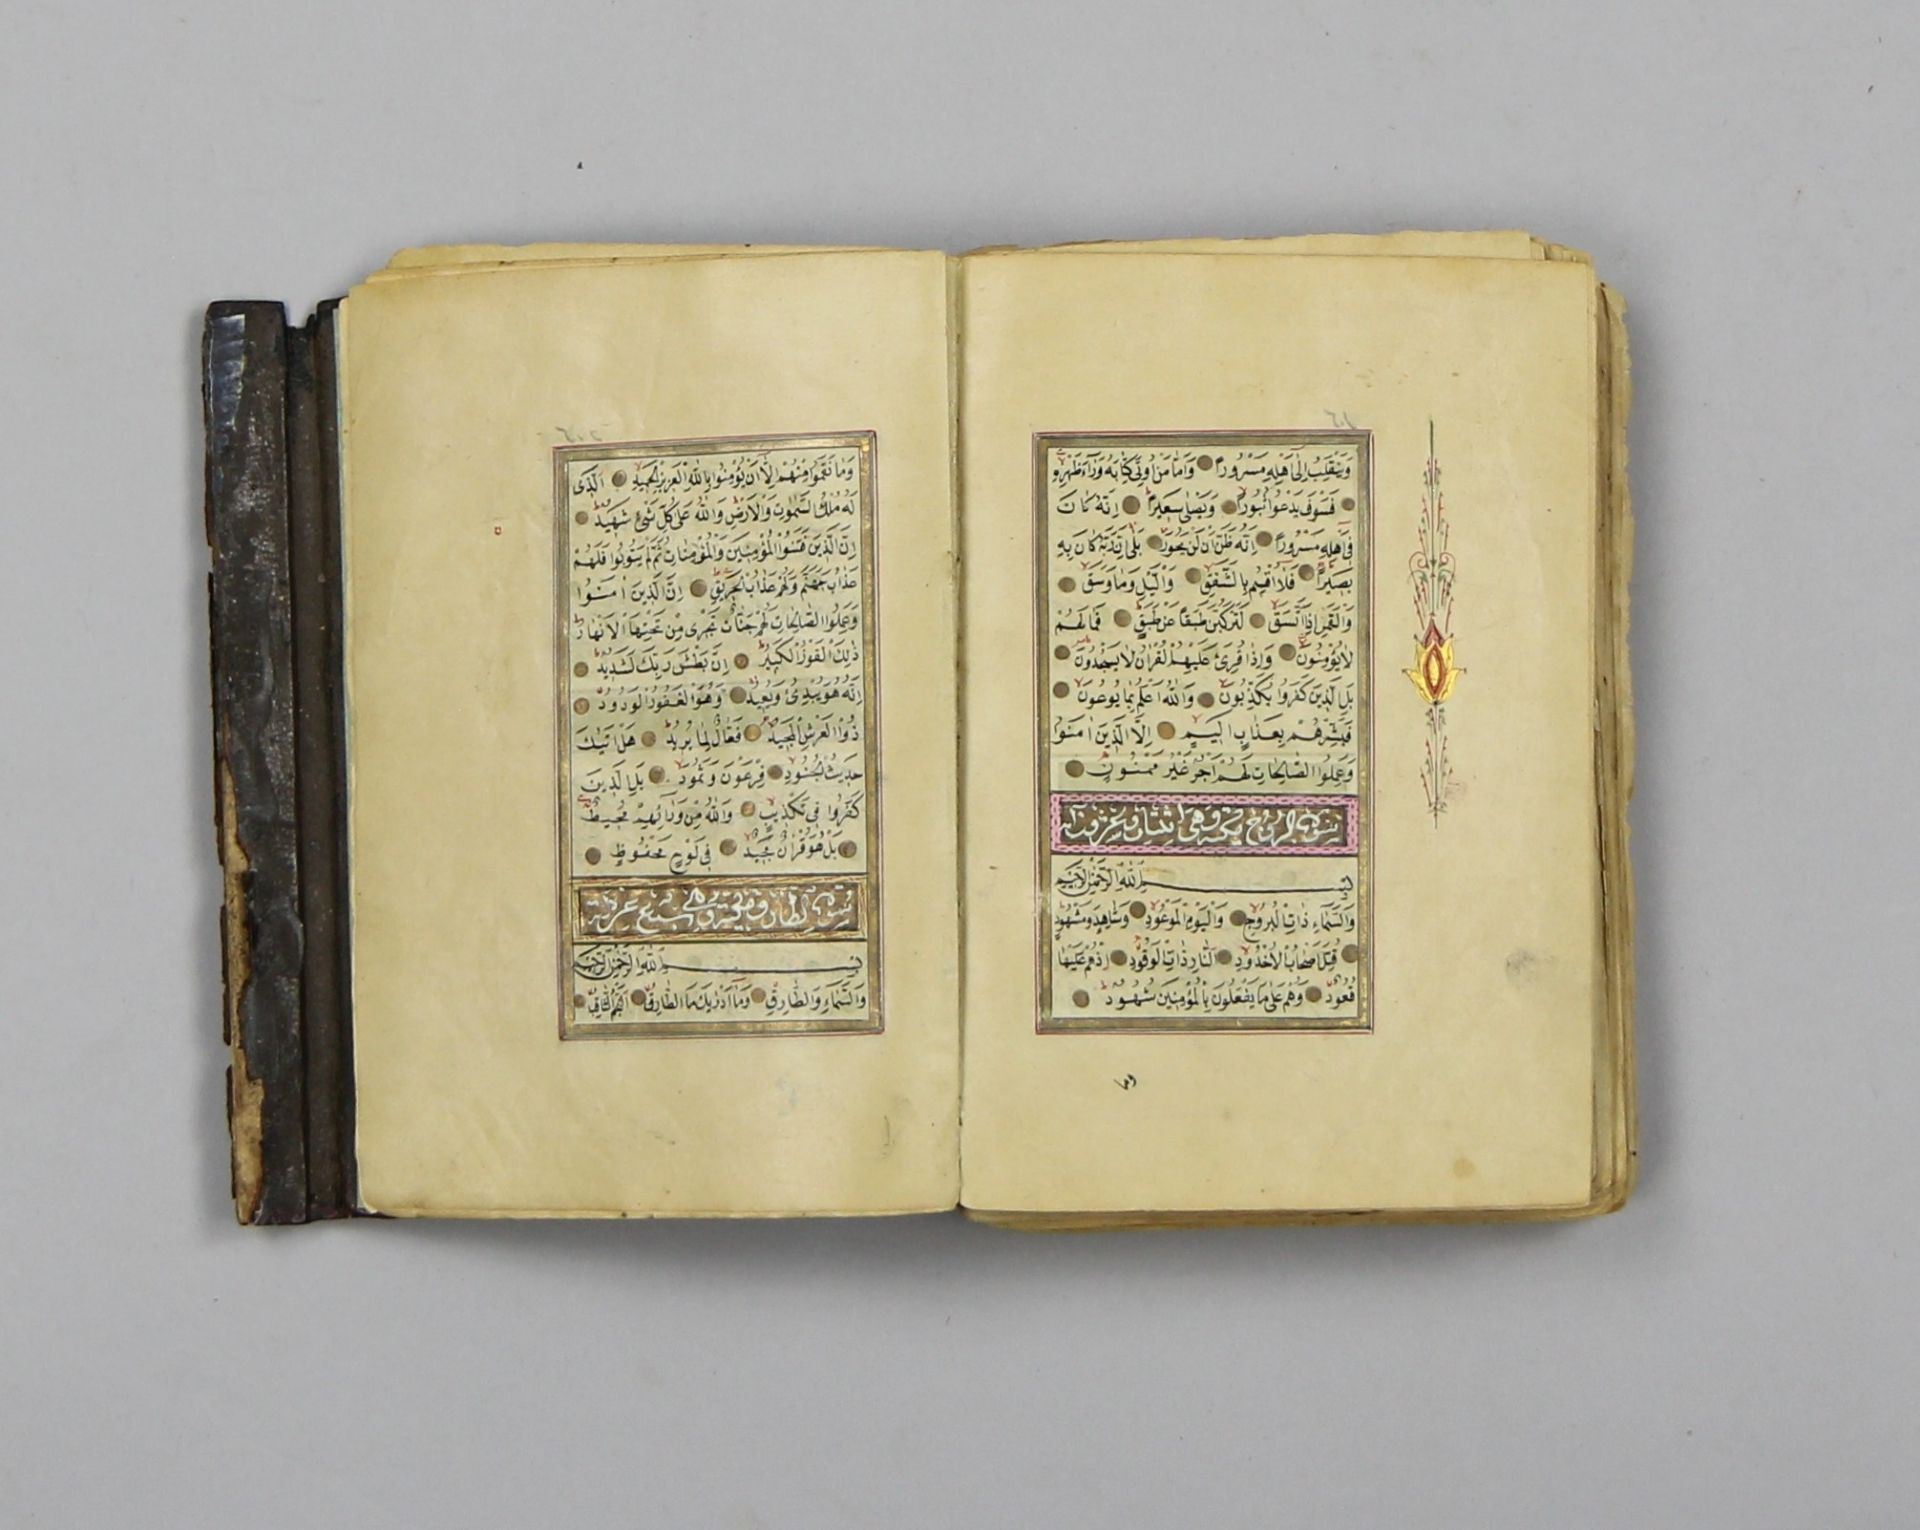 وَيَنْقَلِبُ اِلٰٓى اَهْلِهِ مَسْرُورًا وَاَمَّا مَنْ اُوتِىَ كِتَابَهُ وَرَٓاءَ ظَهْرِهِ
فَسَوْفَ يَدْعُوا ثُبُورًا وَيَصْلٰى سَعِيرًا اِنَّهُ كَانَ
فِٓى اَهْلِهِ مَسْرُورًا اِنَّهُ ظَنَّ اَنْ لَنْ يَحُورَ بَلٰى اِنَّ رَبَّهُ كَانَ بِهِ
بَصِيرًا فَلَٓا اُقْسِمُ بِالشَّفَقِ وَالَّيْلِ وَمَا وَسَقَ
وَالْقَمَرِ اِذَا اتَّسَقَ لَتَرْكَبُنَّ طَبَقًا عَنْ طَبَقٍ فَمَا لَهُمْ
لَا يُؤْمِنُونَ وَاِذَا قُرِئَ عَلَيْهِمُ الْقُرْاٰنُ لَا يَسْجُدُونَ
بَلِ الَّذِينَ كَفَرُوا يُكَذِّبُونَ وَاللّٰهُ اَعْلَمُ بِمَا يُوعُونَ
فَبَشِّرْهُمْ بِعَذَابٍ اَلِيمٍ اِلَّا الَّذِينَ اٰمَنُوا
وَعَمِلُوا الصَّالِحَاتِ لَهُمْ اَجْرٌ غَيْرُ مَمْنُونٍ
سورة البروج مكية وهى اثنتان وعشرون اية
بِسْمِ اللّٰهِ الرَّحْمٰنِ الرَّحِيمِ
وَالسَّمَٓاءِ ذَاتِ الْبُرُوجِ وَالْيَوْمِ الْمَوْعُودِ وَشَاهِدٍ وَمَشْهُودٍ
قُتِلَ اَصْحَابُ الْاُخْدُودِ اَلنَّارِ ذَاتِ الْوَقُودِ اِذْهُمْ عَلَيْهَا
قُعُودٌ وَهُمْ عَلٰى مَا يَفْعَلُونَ بِالْمُؤْمِنِينَ شُهُودٌ
وَمَا نَقَمُوا مِنْهُمْ اِلَّٓا اَنْ يُؤْمِنُوا بِاللّٰهِ الْعَزِيزِ الْحَمِيدِ اَلَّذِى
لَهُ مُلْكُ السَّمٰوَاتِ وَالْاَرْضِ وَاللّٰهُ عَلٰى كُلِّ شَىْءٍ شَهِيدٌ
اِنَّ الَّذِينَ فَتَنُوا الْمُؤْمِنِينَ وَالْمُؤْمِنَاتِ ثُمَّ لَمْ يَتُوبُوا فَلَهُمْ
عَذَابُ جَهَنَّمَ وَلَهُمْ عَذَابُ الْحَرِيقِ اِنَّ الَّذِينَ اٰمَنُوا
وَعَمِلُوا الصَّالِحَاتِ لَهُمْ جَنَّاتٌ تَجْرِى مِنْ تَحْتِهَا الْاَنْهَارُ
ذٰلِكَ الْفَوْزُ الْكَبِيرُ اِنَّ بَطْشَ رَبِّكَ لَشَدِيدٌ
اِنَّهُ هُوَ يُبْدِئُ وَيُعِيدُ وَهُوَ الْغَفُورُ الْوَدُودُ
ذُو الْعَرْشِ الْمَجِيدُ فَعَّالٌ لِمَا يُرِيدُ هَلْ اَتٰيكَ
حَدِيثُ الْجُنُودِ فِرْعَوْنَ وَثَمُودَ بَلِ الَّذِينَ
كَفَرُوا فِى تَكْذِيبٍ وَاللّٰهُ مِنْ وَرَٓائِهِمْ مُحِيطٌ
بَلْ هُوَ قُرْاٰنٌ مَجِيدٌ فِى لَوْحٍ مَحْفُوظٍ
سورة الطارق مكية وهى سبع عشرة اية
بِسْمِ اللّٰهِ الرَّحْمٰنِ الرَّحِيمِ
وَالسَّمَٓاءِ وَالطَّارِقِ وَمَٓا اَدْرٰيكَ مَا الطَّارِقُ اَلنَّجْمُ الثَّاقِبُ